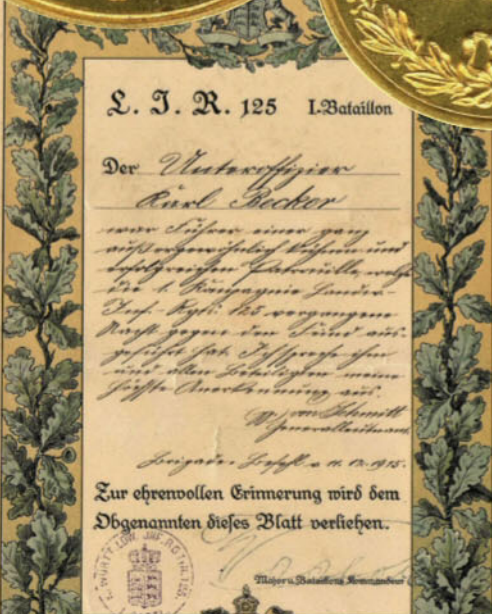 L. I. R. 125 I-Bataillon
Der Unteroffizier
Karl Becker
war Führer einer ganz
außergewöhnlich kühnen und
erfolgreichen Patrouille, welche
die 1. Kompagnie Landw-
Inf.-Rgts. 125 vergangene
Nacht gegen den Feind aus-
geführt hat. Ich spreche ihm
und allen Beteiligten meine
höchste Anerkennung aus.
von Schmitt
Generalleutnant.
Brigade-Befehl v. 11. 12. 1915.
Zur ehrenvollen Erinnerung wird dem
Obgenannten dieses Blatt verliehen.
Major u. Bataillons Kommandeur